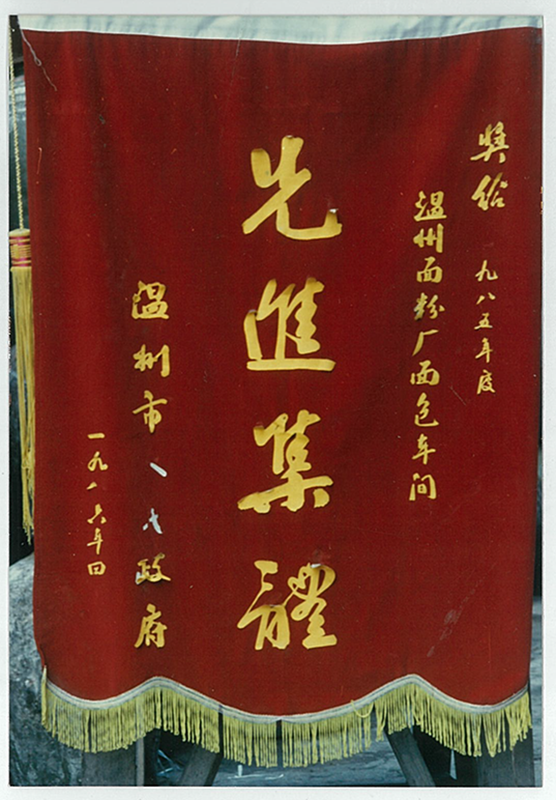 奬给 九八五年度
温州面粉厂面包车间
先進集體
温州市 政府
一九八六年四